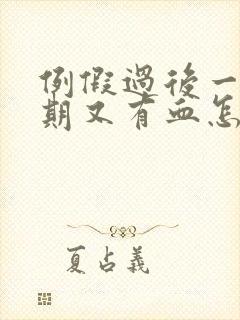 例假過後一
期又有血怎
夏占義